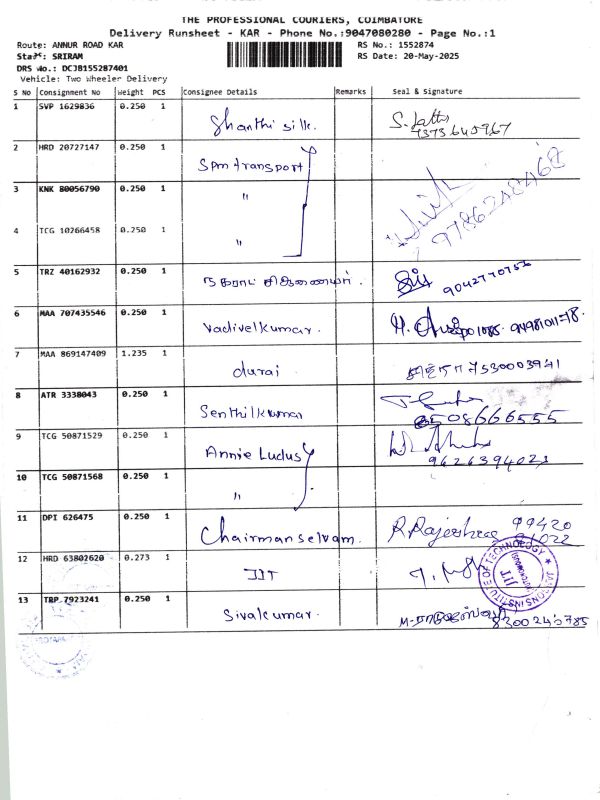 THE PROFESSIONAL COURIERS, COIMBATORE
Delivery Runsheet - KAR - Phone No.:9047080280 - Page No.:1
Route: ANNUR ROAD KAR RS No.: 1552874
Staff: SRIRAM RS Date: 20-May-2025
DRS No.: DCJB155287401
Vehicle: Two Wheeler Delivery
S No Consignment No Weight PCS Consignee Details Remarks Seal & Signature
1 SVP 1629836 0.250 1 Shanthi silk.
2 HRD 20727147 0.250 1 Spm transport
3 KNK 80056790 0.250 1 " 9786248468
4 TCG 10266458 0.250 1 "
5 TRZ 40162932 0.250 1 நகராட்சி ஆணையர். 9042770756
6 MAA 707435546 0.250 1 Vadivelkumar.
7 MAA 869147409 1.235 1 durai 7530003941
8 ATR 3338043 0.250 1 Senthilkumar 8508666555
9 TCG 50871529 0.250 1 Annie Ludus 9626394023
10 TCG 50871568 0.250 1 "
11 DPI 626475 0.250 1 Chairman selvam. 99420
12 HRD 63802620 0.273 1 JIT
JANSONS INSTITUTE OF TECHNOLOGY
JIT
13 TRP 7923241 0.250 1 Sivalkumar. 8300240785